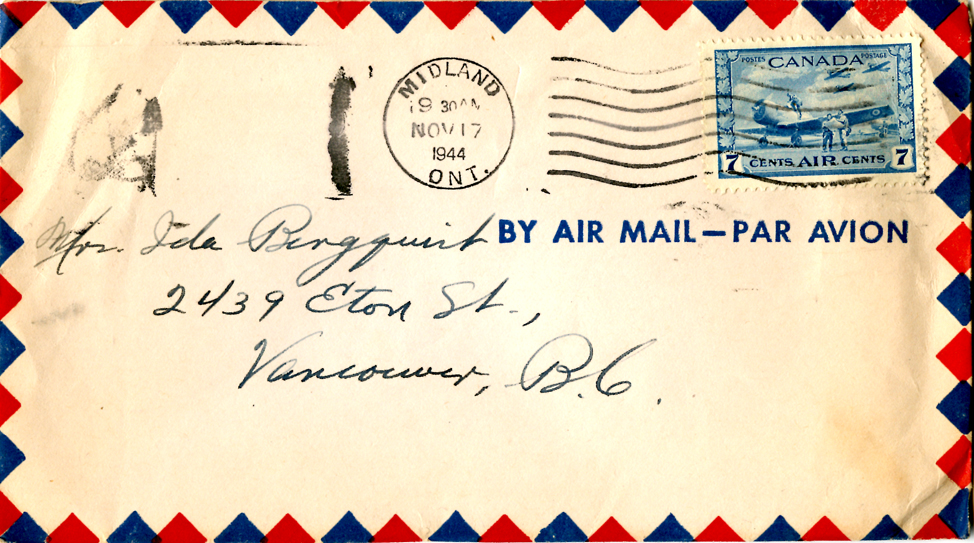 MIDLAND
19 30 AM
NOV 17
1944
ONT.
POSTES CANADA POSTAGE
7 CENTS AIR CENTS 7
BY AIR MAIL—PAR AVION
Mrs. Ida Bergquist
2439 Eton St.,
Vancouver, B.C.